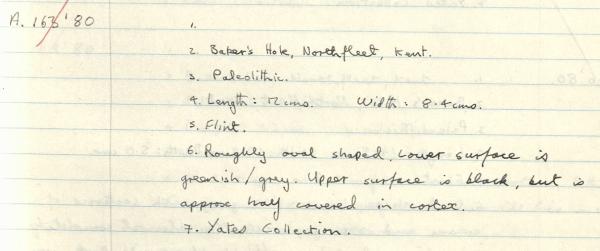 A. 163'80
1.
2. Baker's Hole, Northfleet, Kent.
3. Paleolithic.
4. Length: 12 cms. Width: 8.4 cms.
5. Flint.
6. Roughly oval shaped. Lower surface is
greenish/grey. Upper surface is black, but is
approx half covered in cortex.
7. Yates Collection.